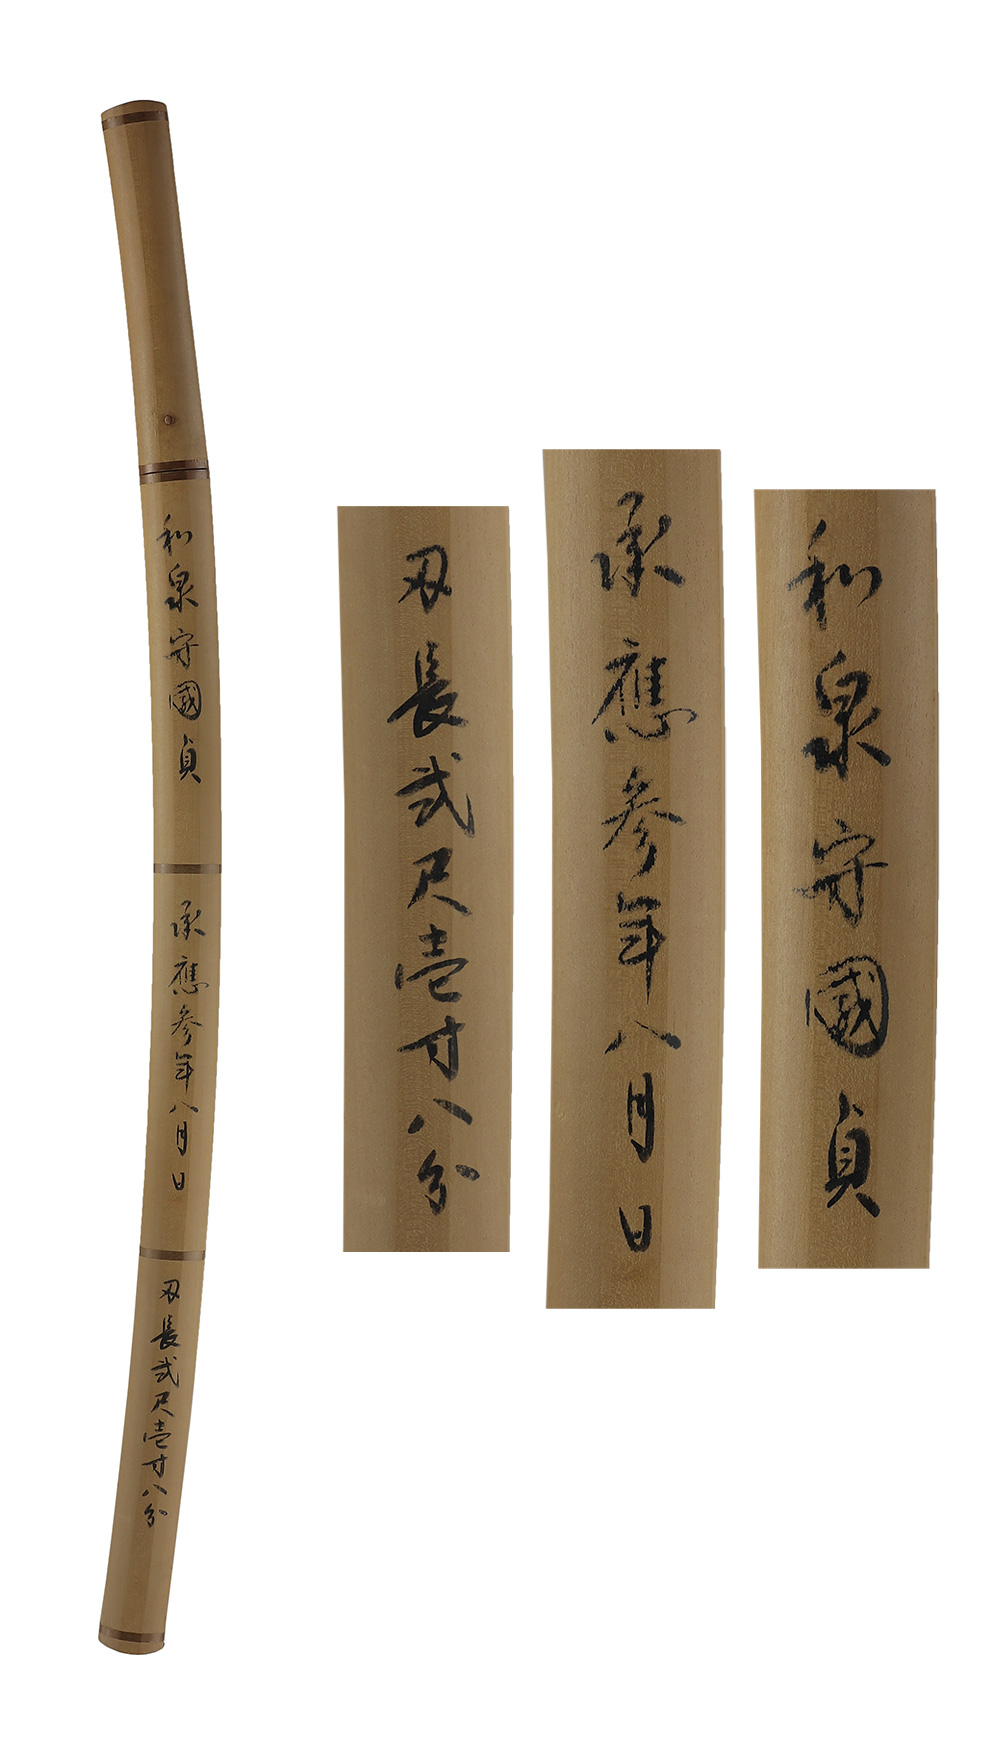 和泉守國貞
承應参年八月日
刃長弐尺壱寸八分
和泉守國貞
承應参年八月日
刃長弐尺壱寸八分